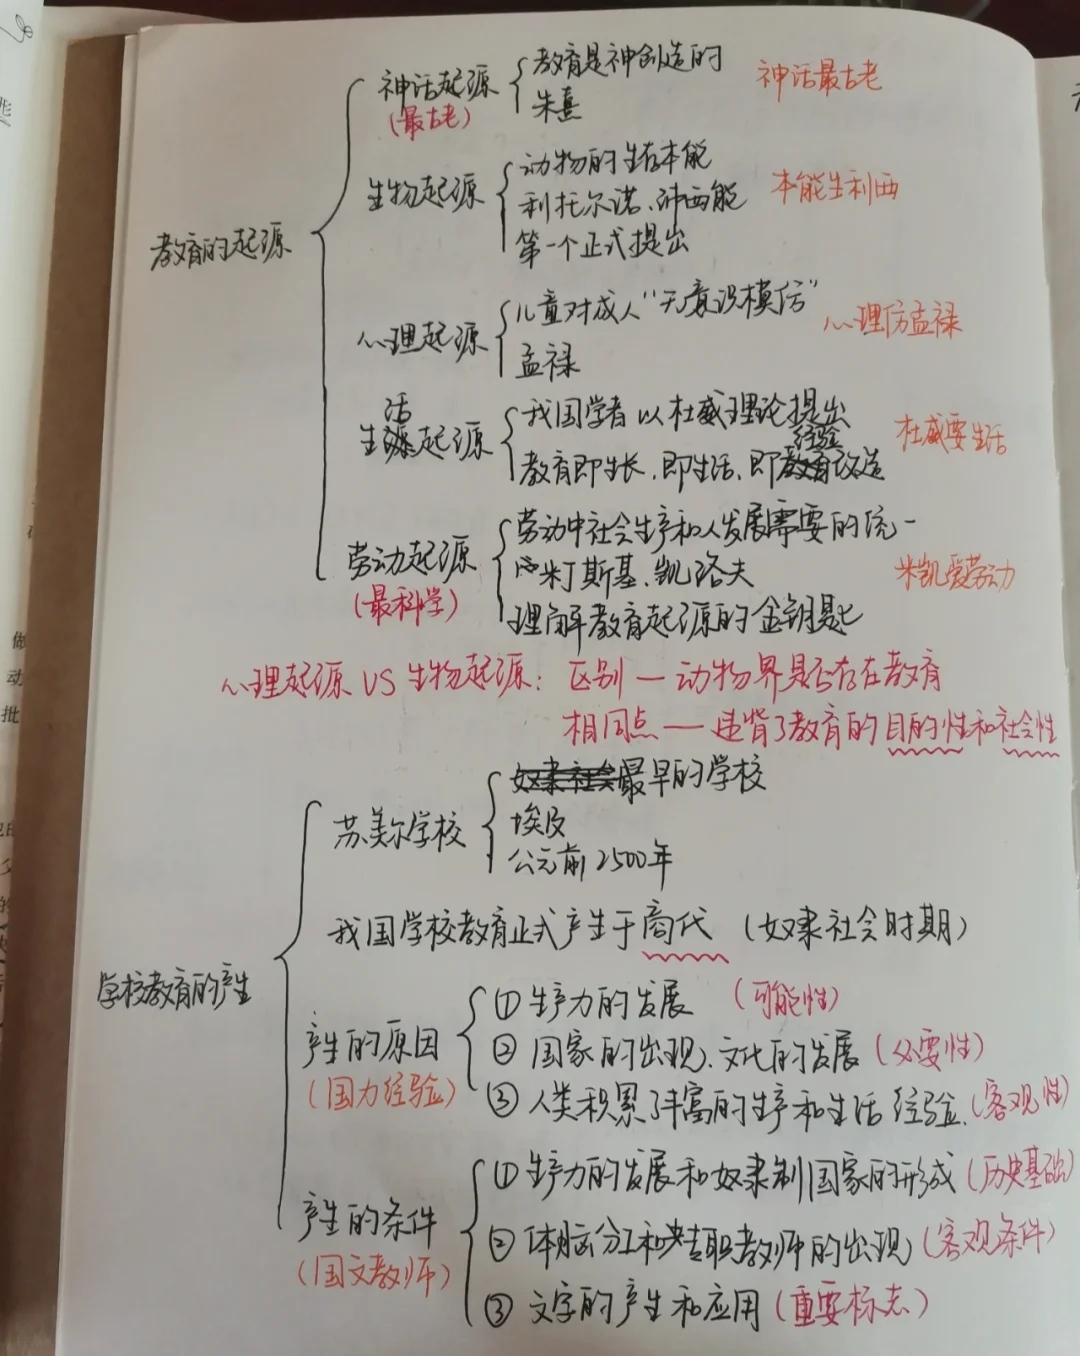 教育是神创造的
神话起源
神话最古老
(最古老)
朱熹
动物的生存本能
生物起源
利托尔诺、沛西能
本能生利西
第一个正式提出
教育的起源
儿童对成人“无意识模仿”
心理起源
心理仿孟禄
孟禄
我国学者以杜威理论提出
生活起源
杜威要生活
教育即生长、即生活、即经验改造
劳动中社会生产和人发展需要的统一
劳动起源
米丁斯基、凯洛夫
米凯爱劳动
(最科学)
理解教育起源的金钥匙
心理起源 VS 生物起源: 区别 — 动物界是否存在教育
相同点 — 违背了教育的目的性和社会性
最早的学校
苏美尔学校
埃及
公元前2500年
我国学校教育正式产生于商代 (奴隶社会时期)
学校教育的产生
① 生产力的发展 (可能性)
产生的原因
② 国家的出现、文化的发展 (必要性)
(国力经验)
③ 人类积累了丰富的生产和生活经验 (客观性)
① 生产力的发展和奴隶制国家的形成 (历史基础)
产生的条件
② 体脑分工和专职教师的出现 (客观条件)
(国文教师)
③ 文字的产生和应用 (重要标志)
做
动
批